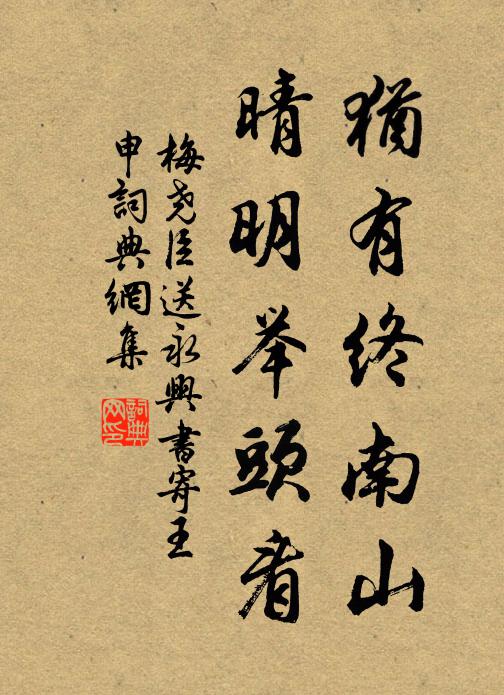 猶有終南山
晴明举頭看
梅尧臣送永興書寄王
申詞典網集
詞典
网印